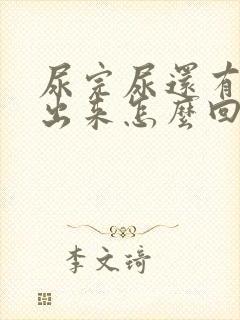 尿完尿還有
出来怎麼回
李文琦